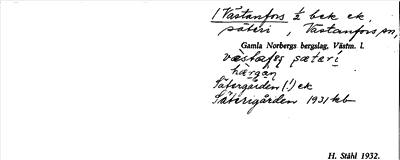 1 Västanfors ½ bek ek,
säteri, Västanfors sn,
Gamla Norbergs bergslag, Västm. l.
sæterí
hærgan
Sätergården (!) ek
Säterigården 1931 kb
H. Ståhl 1932.